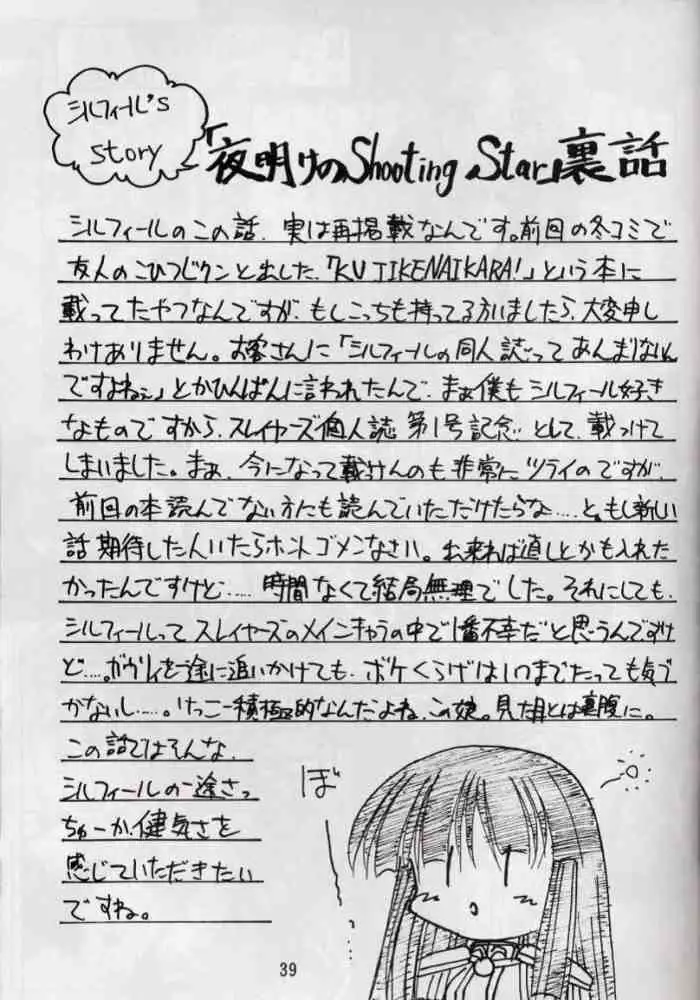 シルフィール's
Story
「夜明けのShooting Star」裏話
シルフィールのこの話、実は再掲載なんです。前回の冬コミで
友人のこひつじクンと出した、「KUJIKENAIKARA!」という本に
載ってたやつなんですが、もしこっちも持ってる方いましたら、大変申し
わけありません。お客さんに「シルフィールの同人誌ってあんまりないん
ですよねぇ」とかひんぱんに言われたんで、まぁ僕もシルフィール好き
なものですから、スレイヤーズ個人誌第1号記念として、載っけて
しまいました。まぁ、今になって載せんのも非常にツライのですが、
前回の本読んでない方にも読んでいただけたらな……と。もし新しい
話期待した人いたらホントゴメンなさい。出来れば直しとかも入れた
かったんですけど……時間なくて結局無理でした。それにしても、
シルフィールってスレイヤーズのメインキャラの中で1番不幸だと思うんですけ
ど……。ガウリイを一途に追いかけても、ボケくらげはいつまでたっても気づ
かないし……。けっこー積極的なんだよね、この娘。見た目とは裏腹に。
この話ではそんな、
シルフィールの一途さっ
ちゅーか、健気さを
感じていただきたい
ですね。
ぼー
39